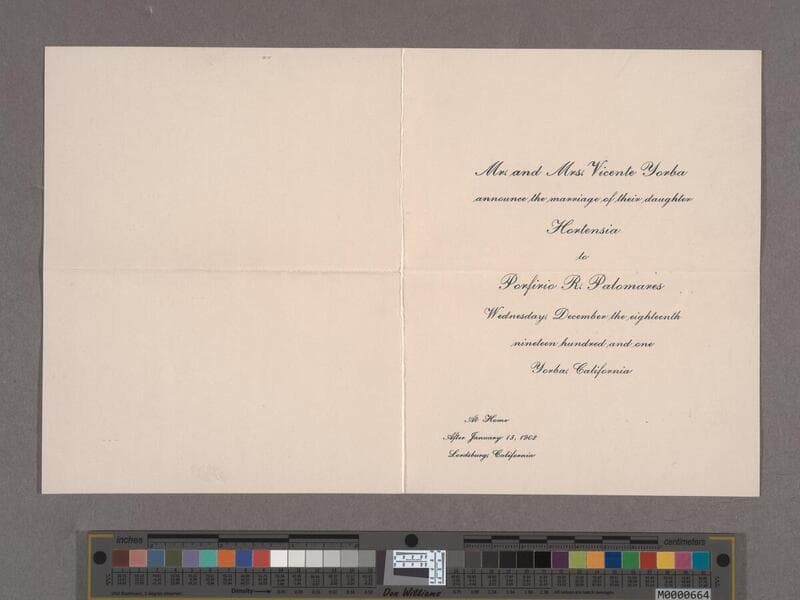 Mr. and Mrs. Vicente Yorba
announce the marriage of their daughter
Hortensia
to
Porfirio R. Palomares
Wednesday, December the eighteenth
nineteen hundred and one
Yorba, California
At Home
After January 15, 1902
Lordsburg, California
inches
centimeters
Density
Don Williams
M0000664